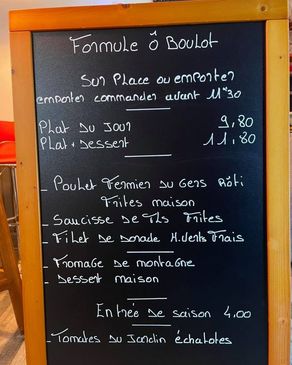 Formule ô Boulot
Sur Place ou emporter
emporter commander avant 11H30
Plat du Jour 9,80
Plat + Dessert 11,80
- Poulet Fermier du Gers Rôti
Frites maison
- Saucisse de Tls Frites
- Filet de Dorade H.Verts Frais
- Fromage de montagne
- Dessert maison
Entrée de saison 4,00
- Tomates du Jardin échalotes